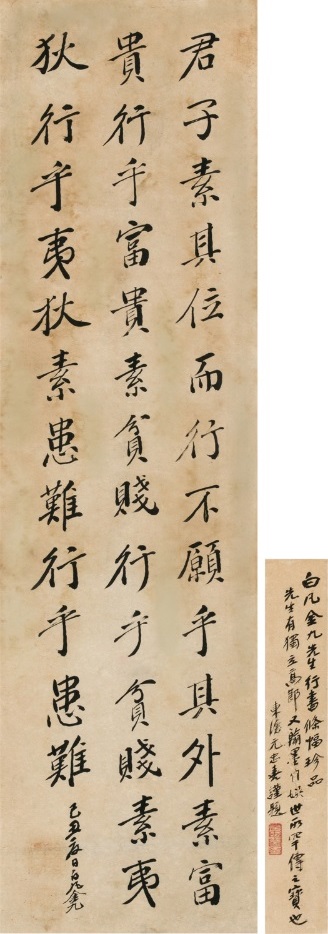 君子素其位而行不願乎其外素富
貴行乎富貴素貧賤行乎貧賤素夷
狄行乎夷狄素患難行乎患難
己丑春日白凡金九
白凡金九先生行書條幅珍品
先生有獨立高節又翰墨作娛世所罕傳之寶也
東濱元忠喜謹題